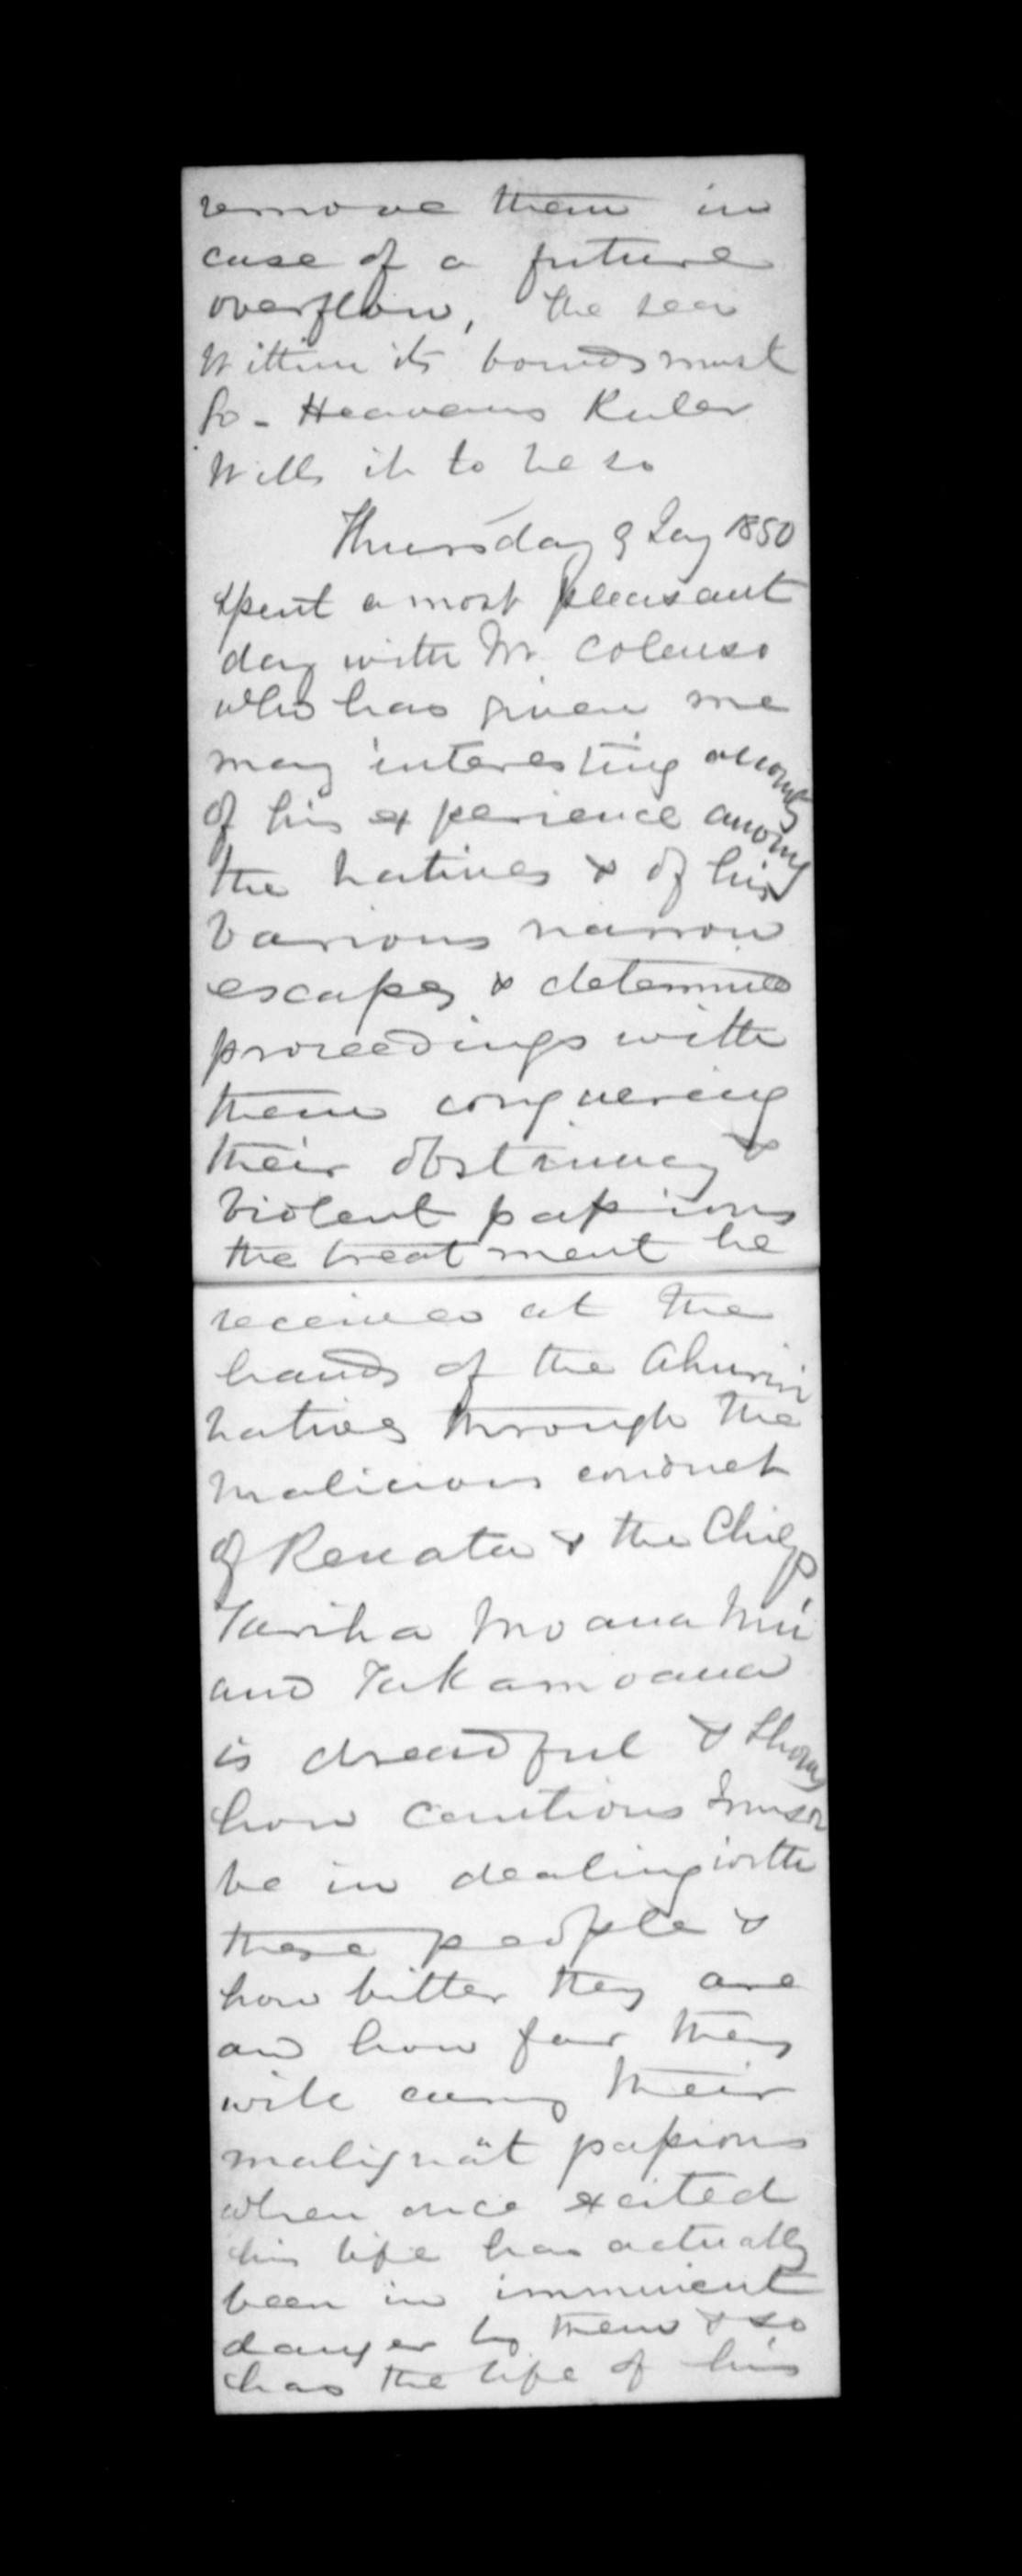 remove them in
case of a future
overflow, the sea
Within its bounds must
go - Heavens Ruler
Wills it to be so
Thursday 9 Jany 1850
Spent a most pleasant
day with Mr. Colenso
who has given me
many interesting accounts
of his experience among
the natives & of his
various narrow
escapes & determined
proceedings with
them conquering
their obstinacy &
violent passions
the treatment he
receives at the
hands of the Ahuriri
natives through the
malicious conduct
of Renata & the Chiefs
Tareha Moananui
and Takamoana
is dreadful & shows
how cautious I must
be in dealing with
these people &
how bitter they are
and how far they
will carry their
malignant passions
when once excited
his life has actually
been in imminent
danger by them & so
has the life of his